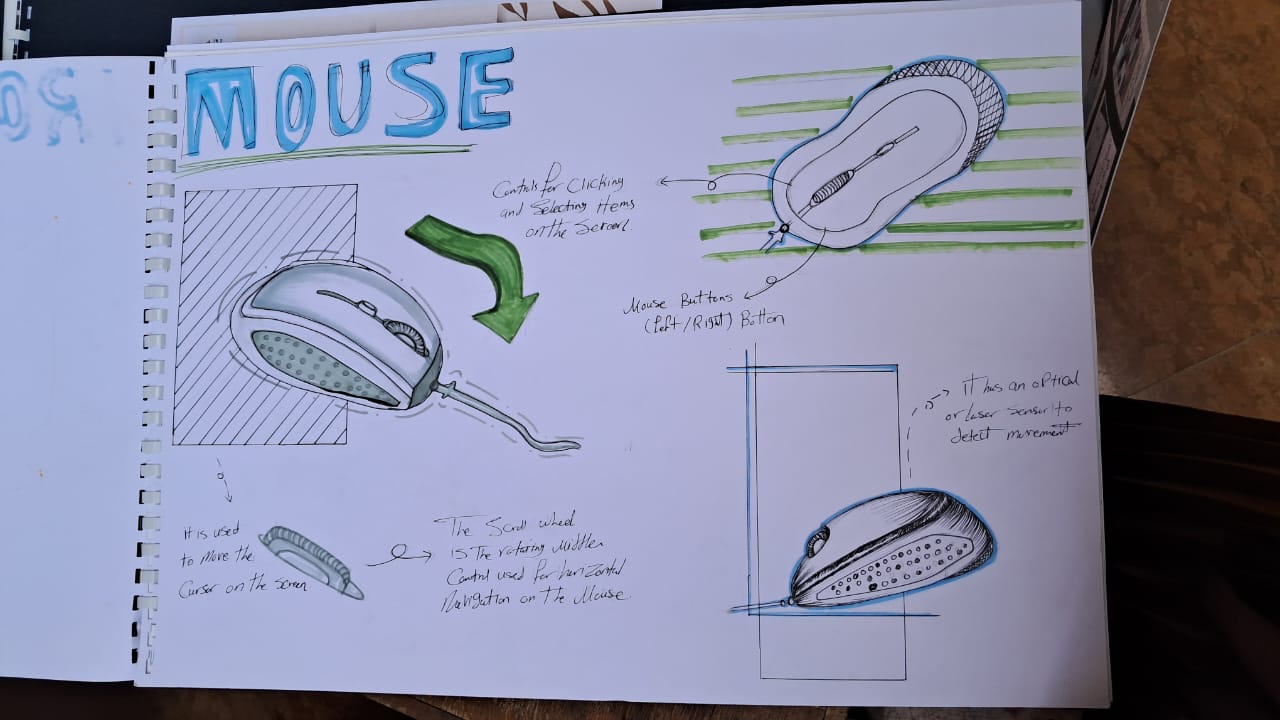 MOUSE
Controls for Clicking
and Selecting Items
on the Screen.
Mouse Buttons
(Left/Right) Botton
it has an optical
or laser sensor to
detect movement
it is used
to move the
Cursor on the screen
The Scroll wheel
is The rotating Middle
Control used for horizontal
Navigation on The Mouse.